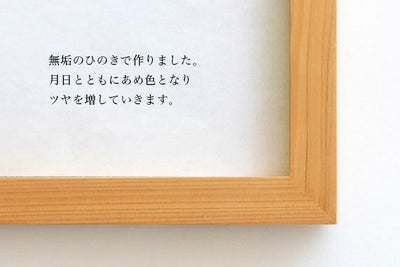 無垢のひのきで作りました。
月日とともにあめ色となり
ツヤを増していきます。